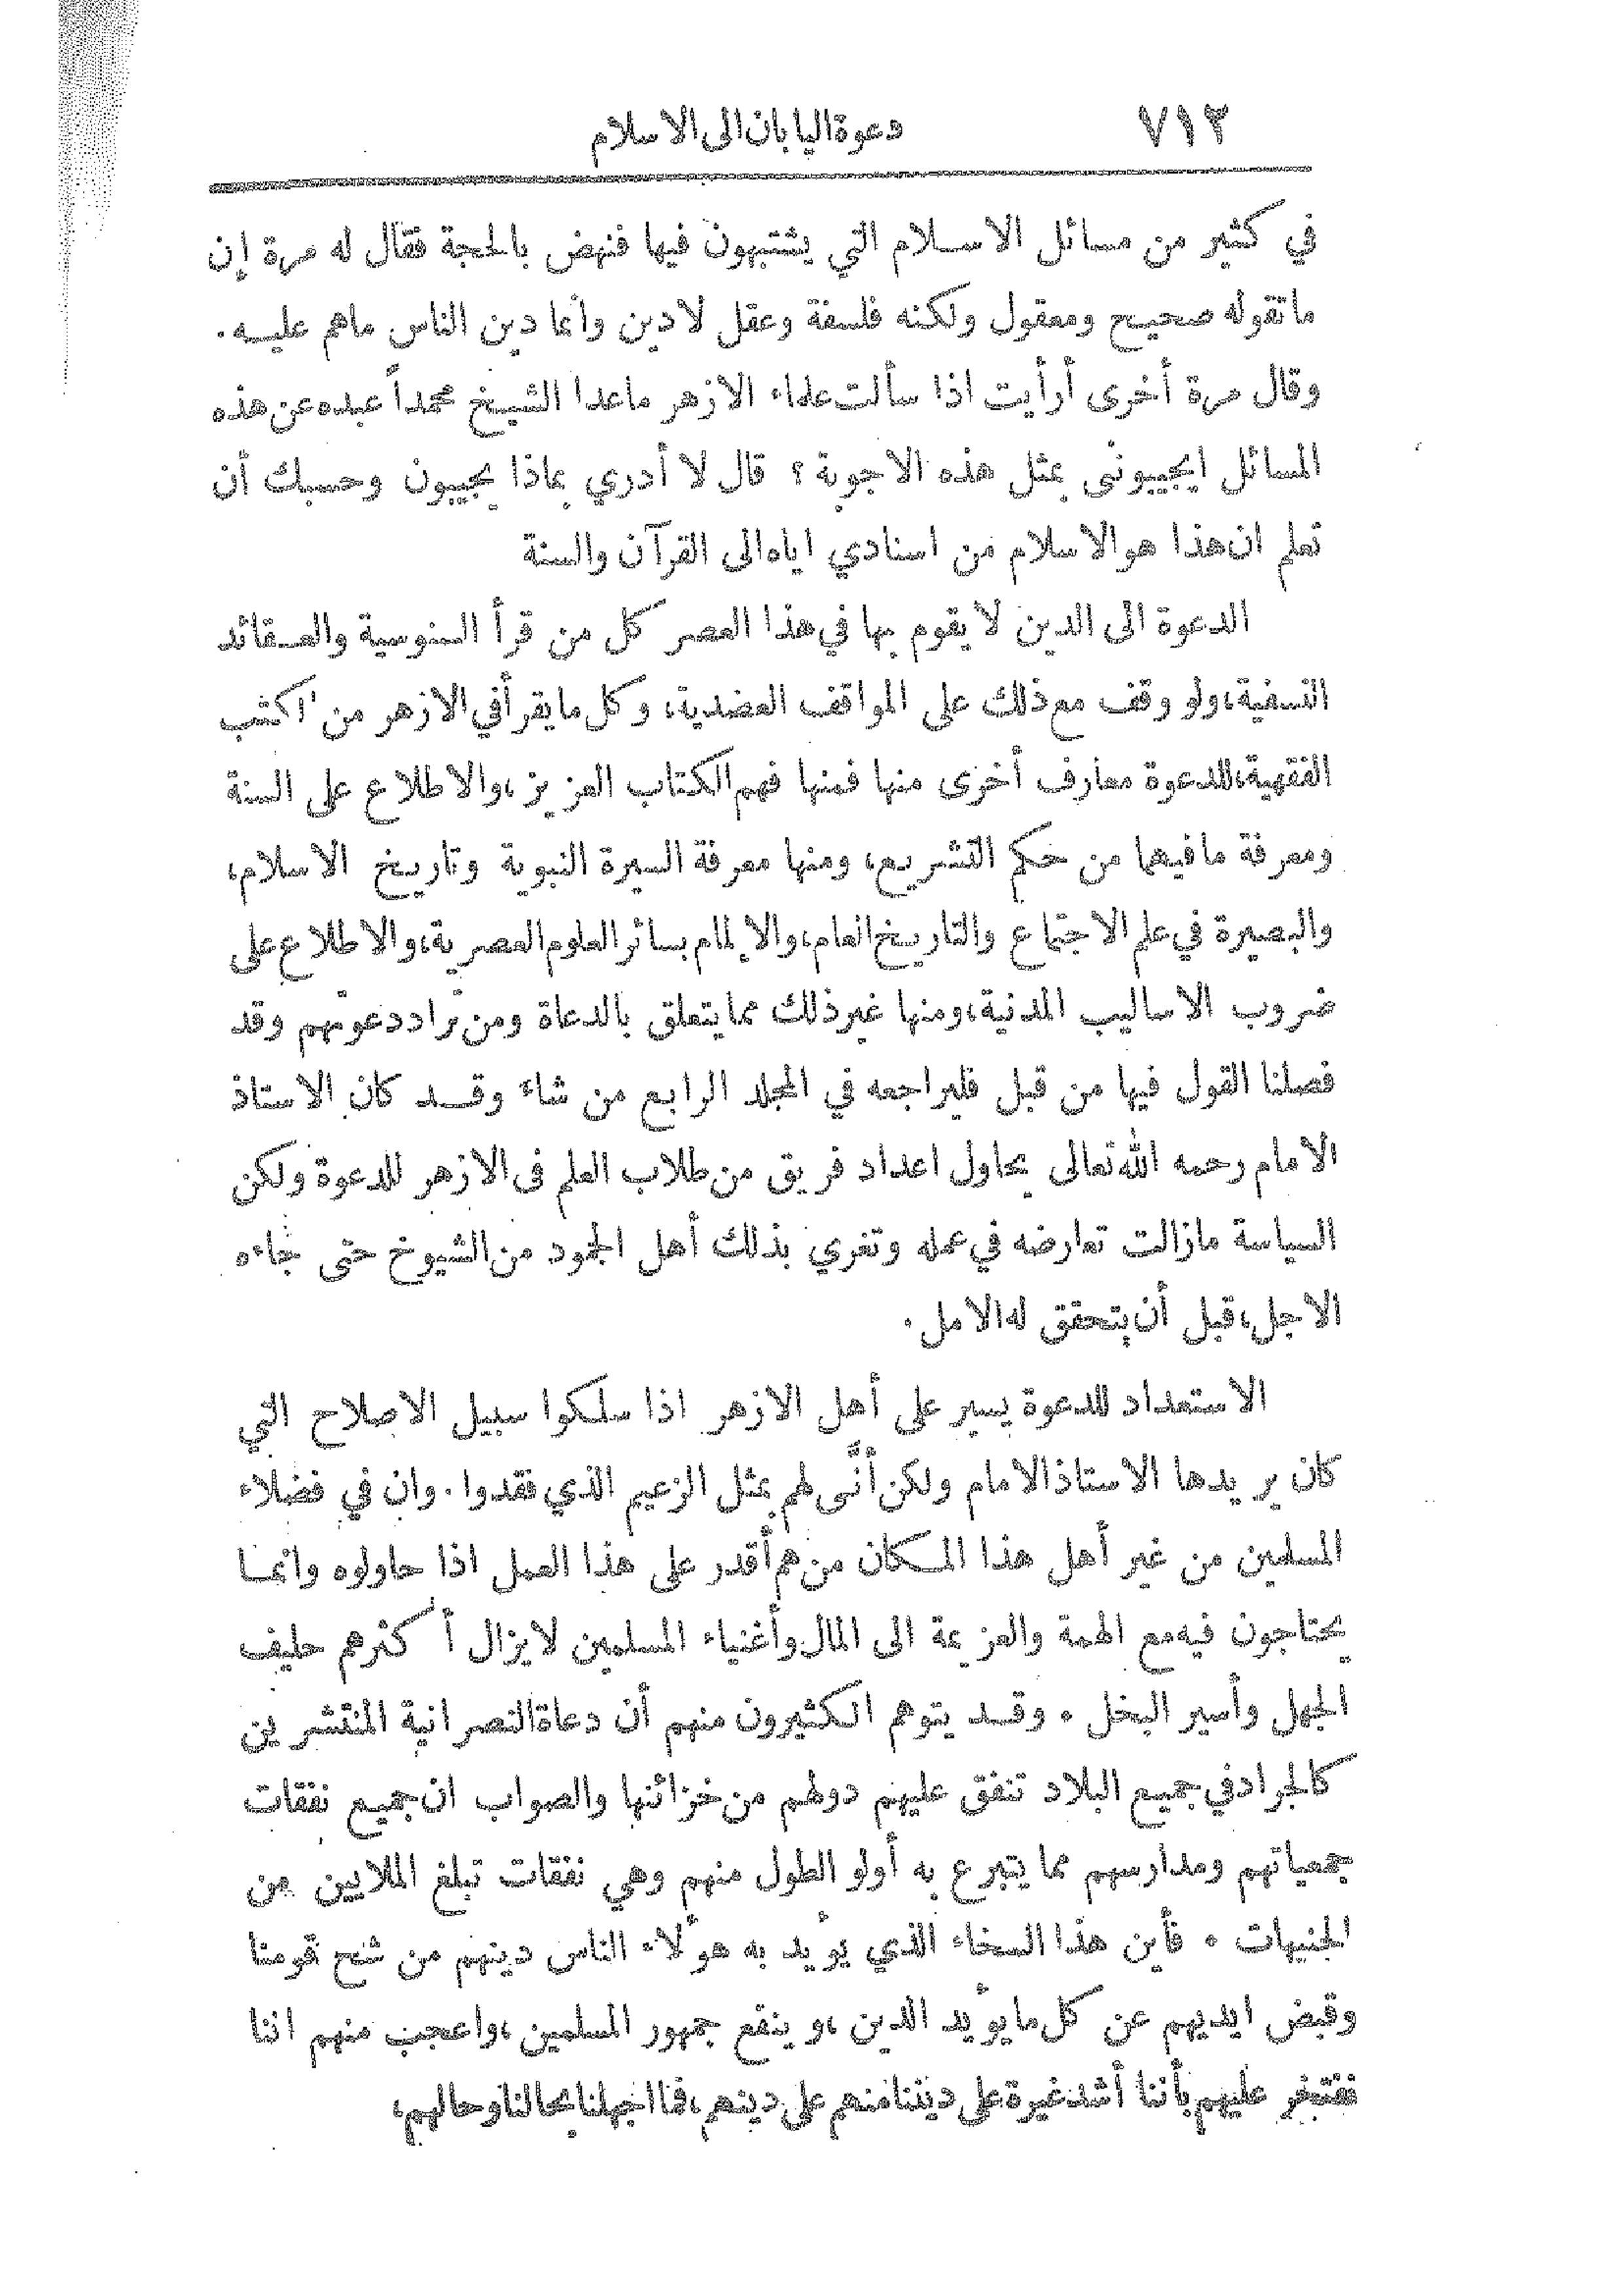 ٧١٢
دعوة اليابان الى الاسلام
في كثير من مسائل الاسلام التي يشتبهون فيها فنهض بالحجة فقال له مرة إن
ما تقوله صحيح ومعقول ولكنه فلسفة وعقل لا دين وأنما دين الناس ماهم عليه .
وقال مرة أخرى أرأيت اذا سألت علماء الازهر ماعدا الشيخ محمداً عبده عن هذه
المسائل ايجيبوني بمثل هذه الاجوبة ؟ قال لا أدري بماذا يجيبون وحسبك أن
تعلم ان هذا هو الاسلام من اسنادي اياه الى القرآن والسنة
الدعوة الى الدين لا يقوم بها في هذا العصر كل من قرأ السنوسية والعقائد
النسفية، ولو وقف مع ذلك على المواقف العضدية، وكل ما يقرأ في الازهر من اكتب
الفقهية، للدعوة معارف أخرى منها فمنها فهم الكتاب العزيز، والاطلاع على السنة
ومعرفة ما فيهما من حكم التشريع، ومنها معرفة السيرة النبوية وتاريخ الاسلام،
والبصيرة في علم الاجتماع والتاريخ العام، والإلمام بسائر العلوم العصرية، والاطلاع على
ضروب الاساليب المدنية، ومنها غير ذلك مما يتعلق بالدعاة ومن تراد دعوتهم وقد
فصلنا القول فيها من قبل فليراجعه في المجلد الرابع من شاء وقد كان الاستاذ
الامام رحمه الله تعالى يحاول اعداد فريق من طلاب العلم فى الازهر للدعوة ولكن
السياسة مازالت تعارضه في عمله وتغري بذلك أهل الجمود من الشيوخ حتى جاءه
الاجل، قبل أن يتحقق له الامل .
الاستعداد للدعوة يسير على أهل الازهر اذا سلكوا سبيل الاصلاح التي
كان يريدها الاستاذ الامام ولكن أنَّى لهم بمثل الزعيم الذي فقدوا . وان في فضلاء
المسلمين من غير أهل هذا المكان من هم أقدر على هذا العمل اذا حاولوه وانما
يحتاجون فيه مع الهمة والعزيمة الى المال وأغنياء المسلمين لايزال أكثرهم حليف
الجهل وأسير البخل . وقد يتوهم الكثيرون منهم أن دعاة النصرانية المنتشرين
كالجراد في جميع البلاد تنفق عليهم دولهم من خزائنها والصواب ان جميع نفقات
جمعياتهم ومدارسهم مما يتبرع به أولو الطول منهم وهي نفقات تبلغ الملايين من
الجنيهات . فأين هذا السخاء الذي يؤيد به هؤلاء الناس دينهم من شح قومنا
وقبض ايديهم عن كل ما يؤيد الدين، وينفع جمهور المسلمين، واعجب منهم اننا
نفتخر عليهم بأننا أشد غيرة على ديننا منهم على دينهم، فما اجهلنا بحالنا وحالهم،